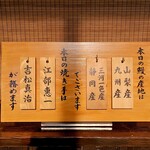 本日の鰻の産地は
山梨産
九州産
三河一色産
静岡産
でございます
本日の焼き手は
江部恵一
吉松真治
が務めます